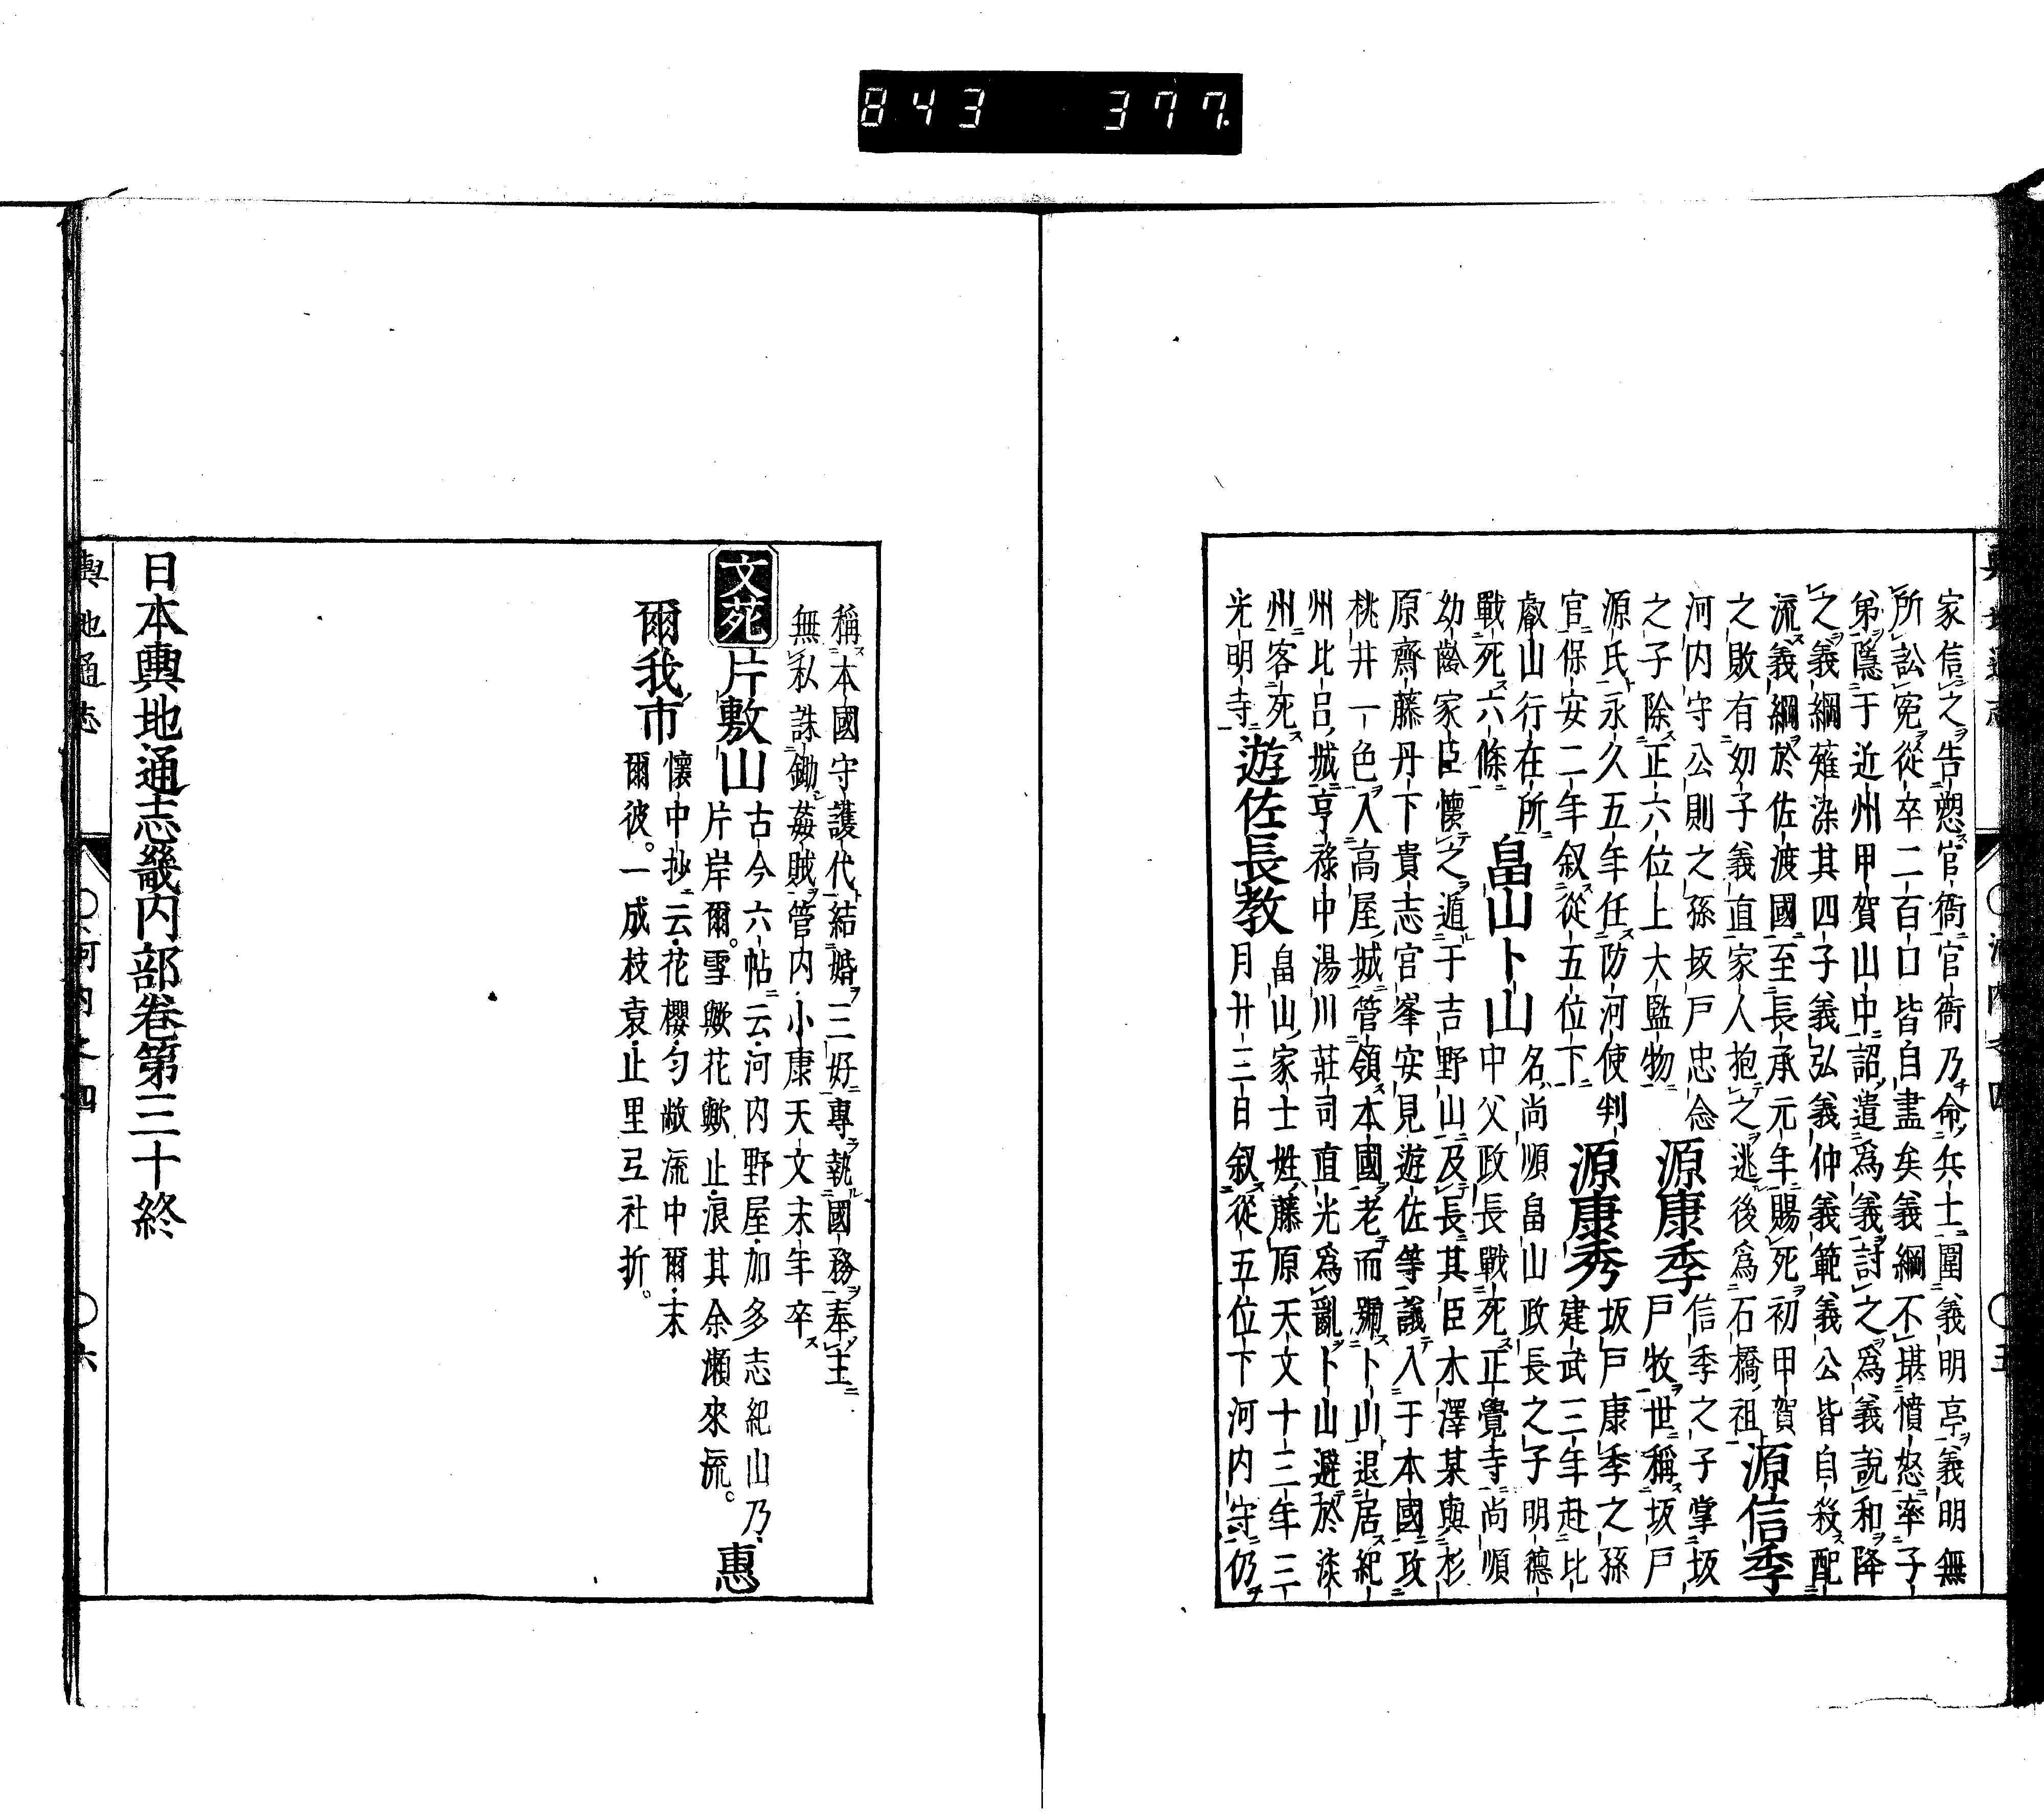 843 377.
家信之告愬官衙官衙乃命兵士圍義明亭義明無
所訟寃從卒二百口皆自盡矣義綱不堪憤怒率子
弟隱于近州甲賀山中詔遣爲義討之爲義說和降
之義綱薙染其四子義弘義仲義範義公皆自殺配
流義綱於佐渡國至長承元年賜死初甲賀
之敗有幼子義直家人抱之逃後爲石橋祖 源信季
河内守公則之孫坂戸忠念
信季之子掌坂
之子除正六位上大監物 源康季 戸牧世稱坂戸
源氏永久五年任防河使判
坂戸康季之孫
官保安二年叙從五位下 源康秀 建武三年赴比
叡山行在所
名尚順畠山政長之子明德
戰死六條 畠山卜山 中父政長戰死正覺寺尚順
幼齡家臣懷之遁于吉野山及長其臣木澤某與杉
原齋藤丹下貴志宮峯安見遊佐等議入于本國攻
桃井一色入高屋城管領本國老而號卜山退居紀
州比呂城亨祿中湯川莊司直光爲亂卜山避於淡
州客死
畠山家士姓藤原天文十三年三
光明寺 遊佐長教 月廿三日叙從五位下河内守仍
稱本國守護代結婚三好專執國務奉主
無私誅鋤姦賊管内小康天文末年卒
文苑 片敷山 古今六帖云河内野屋加多志紀山乃
片岸爾。雪歟花歟止浪其余瀬來流。 惠
爾我市 懷中抄云花櫻匀敞流中爾末
爾彼。一成枝袁止里弖社折。
日本輿地通志畿内部卷第三十終
輿地通志 〇河内之四 〇六